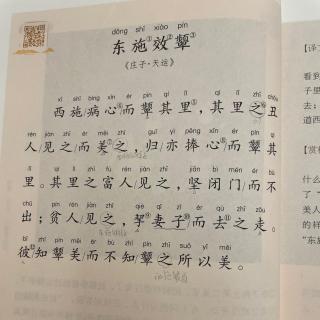 dōng shī xiào pín
东施①效②颦③
《庄子·天运》
xī shī bìng xīn ér pín qí lǐ qí lǐ zhī chǒu
西施/病心④/而颦其里⑤,其里之⑥丑
rén jiàn zhī ér měi zhī guī yì pěng xīn ér pín qí
人/见之/而美⑦之,归/亦捧心/而颦其
lǐ qí lǐ zhī fù rén jiàn zhī jiān bì mén ér bù
里。其里之富人/见之,坚闭门/而不
chū pín rén jiàn zhī qiè qī zǐ ér qù zhī zǒu
出;贫人/见之,挈⑨妻子⑩/而去⑪之走。
bǐ zhī pín měi ér bù zhī pín zhī suǒ yǐ měi
彼/知颦美/而不知/颦之所以美。
【译
看到
子里
去;
道西
【赏
什么
了“
美人
的样
“东